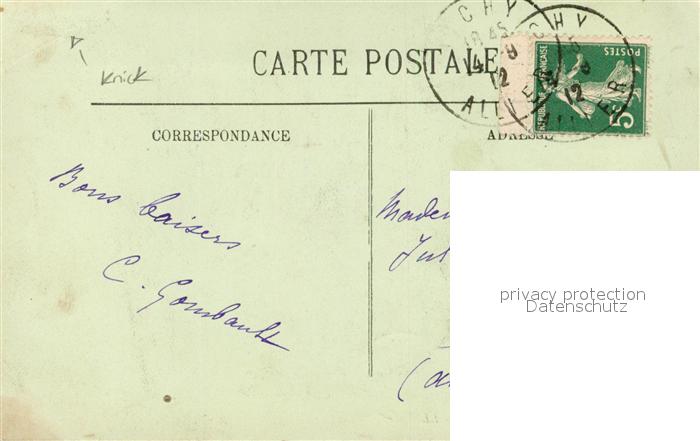 knick
CARTE POSTALE
CHY
18 45
14 - 9
12
ALLIER
CHY
9
12
ALLIER
POSTES
RÉPUBLIQUE FRANÇAISE
5c
CORRESPONDANCE
ADRESSE
Bons baisers
C. Gombault
Madem
Jul
privacy protection
Datenschutz